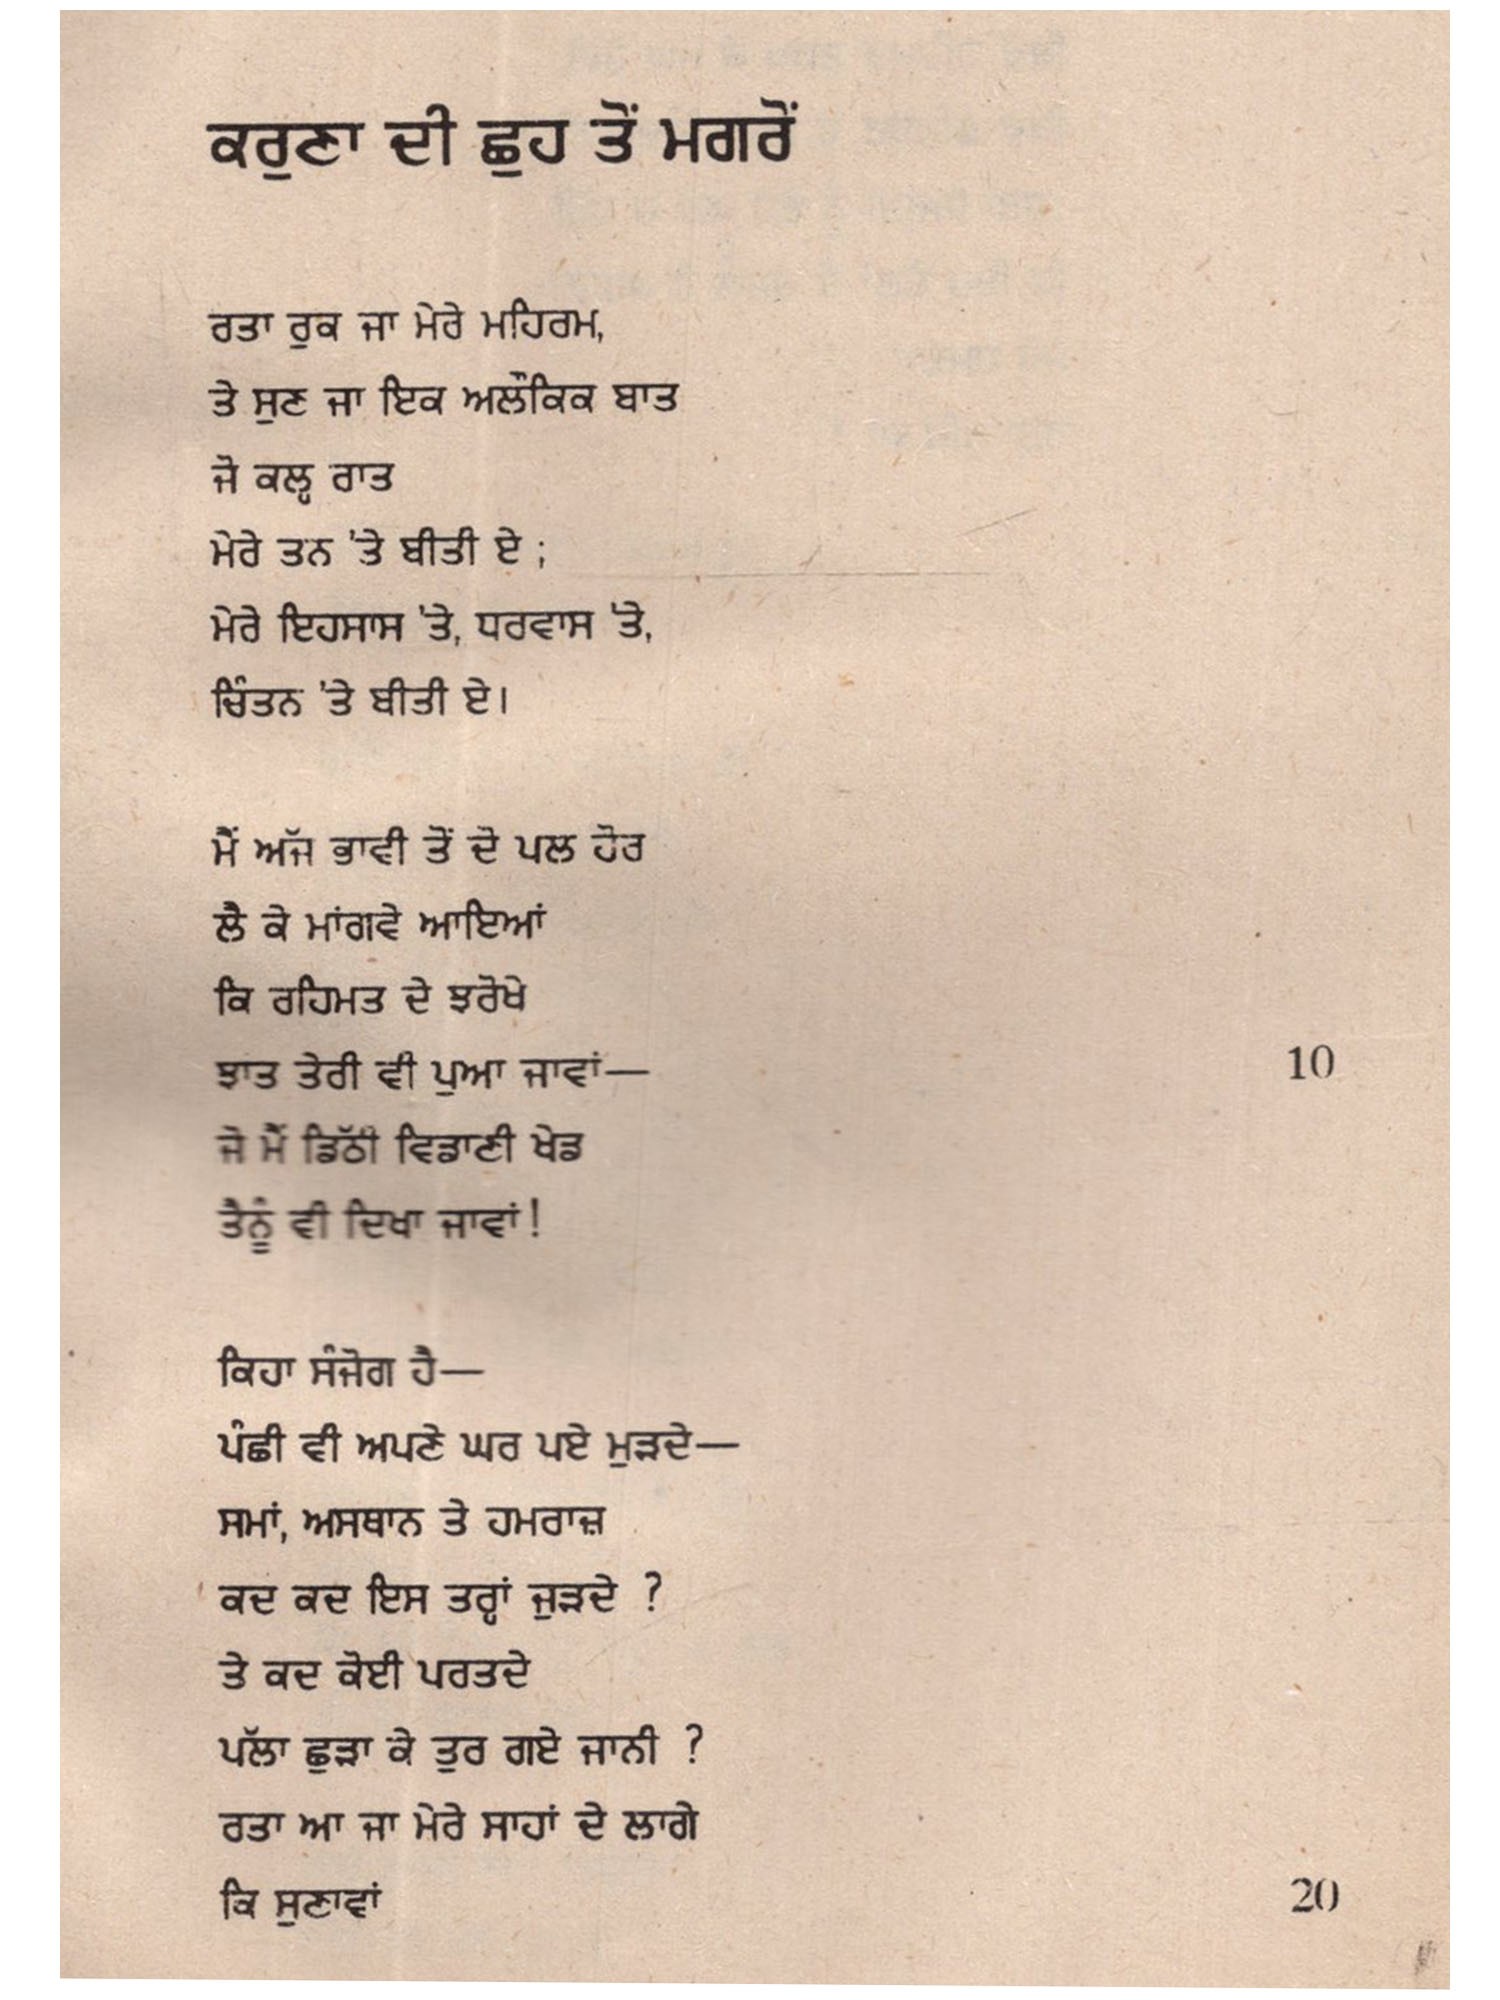 ਕਰੁਣਾ ਦੀ ਛੁਹ ਤੋਂ ਮਗਰੋਂ
ਰਤਾ ਰੁਕ ਜਾ ਮੇਰੇ ਮਹਿਰਮ,
ਤੇ ਸੁਣ ਜਾ ਇਕ ਅਲੌਕਿਕ ਬਾਤ
ਜੋ ਕਲ੍ਹ ਰਾਤ
ਮੇਰੇ ਤਨ 'ਤੇ ਬੀਤੀ ਏ ;
ਮੇਰੇ ਇਹਸਾਸ 'ਤੇ, ਧਰਵਾਸ 'ਤੇ,
ਚਿੰਤਨ 'ਤੇ ਬੀਤੀ ਏ।
ਮੈਂ ਅੱਜ ਭਾਵੀ ਤੋਂ ਦੋ ਪਲ ਹੋਰ
ਲੈ ਕੇ ਮਾਂਗਵੇ ਆਇਆਂ
ਕਿ ਰਹਿਮਤ ਦੇ ਝਰੋਖੇ
ਝਾਤ ਤੇਰੀ ਵੀ ਪੁਆ ਜਾਵਾਂ— 10
ਜੋ ਮੈਂ ਡਿੱਠੀ ਵਿਡਾਣੀ ਖੇਡ
ਤੈਨੂੰ ਵੀ ਦਿਖਾ ਜਾਵਾਂ!
ਕਿਹਾ ਸੰਜੋਗ ਹੈ—
ਪੰਛੀ ਵੀ ਅਪਣੇ ਘਰ ਪਏ ਮੁੜਦੇ—
ਸਮਾਂ, ਅਸਥਾਨ ਤੇ ਹਮਰਾਜ਼
ਕਦ ਕਦ ਇਸ ਤਰ੍ਹਾਂ ਜੁੜਦੇ ?
ਤੇ ਕਦ ਕੋਈ ਪਰਤਦੇ
ਪੱਲਾ ਛੁੜਾ ਕੇ ਤੁਰ ਗਏ ਜਾਨੀ ?
ਰਤਾ ਆ ਜਾ ਮੇਰੇ ਸਾਹਾਂ ਦੇ ਲਾਗੇ
ਕਿ ਸੁਣਾਵਾਂ 20